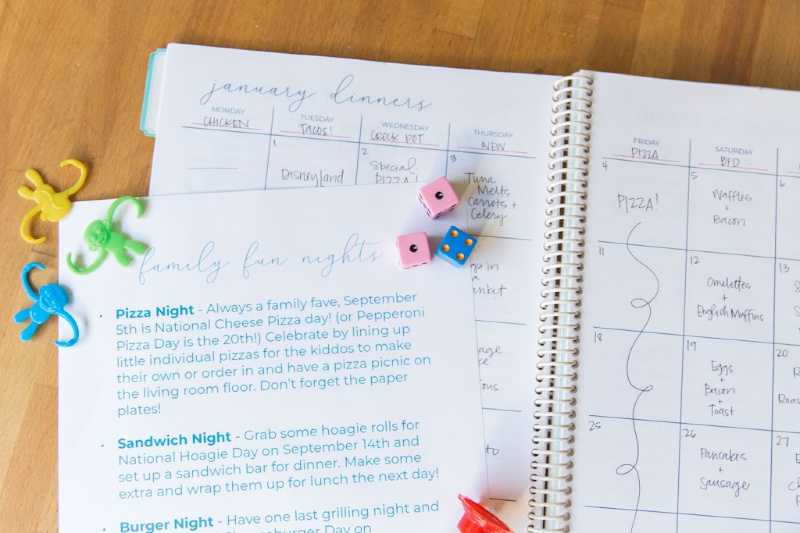 january dinners
MONDAY TUESDAY WEDNESDAY THURSDAY
CHICKEN TACOS! CROCK POT NEW
1
Disneyland
2
Special
PIZZA!
3
Tuna
Melts
Carrots +
Celery
FRIDAY SATURDAY
PIZZA BFD
4
PIZZA!
5
Waffles
+
Bacon
6
11
12
Omelettes
+
English Muffins
13
18
19
Eggs
+
Bacon
+
Toast
20
25
26
Pancakes
+
Sausage
27
family fun nights
• Pizza Night - Always a family fave, September
5th is National Cheese Pizza day! (or Pepperoni
Pizza Day is the 20th!) Celebrate by lining up
little individual pizzas for the kiddos to make
their own or order in and have a pizza picnic on
the living room floor. Don't forget the paper
plates!
• Sandwich Night - Grab some hoagie rolls for
National Hoagie Day on September 14th and
set up a sandwich bar for dinner. Make some
extra and wrap them up for lunch the next day!
• Burger Night - Have one last grilling night and